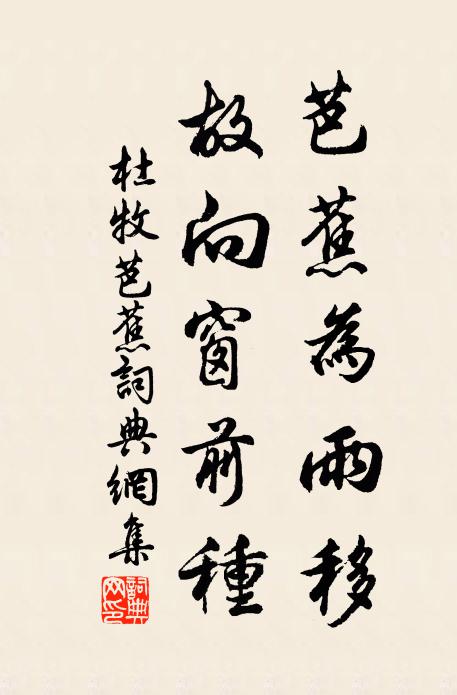 芭蕉為雨移
故向窗前種
杜牧芭蕉詞典網集
詞典网印